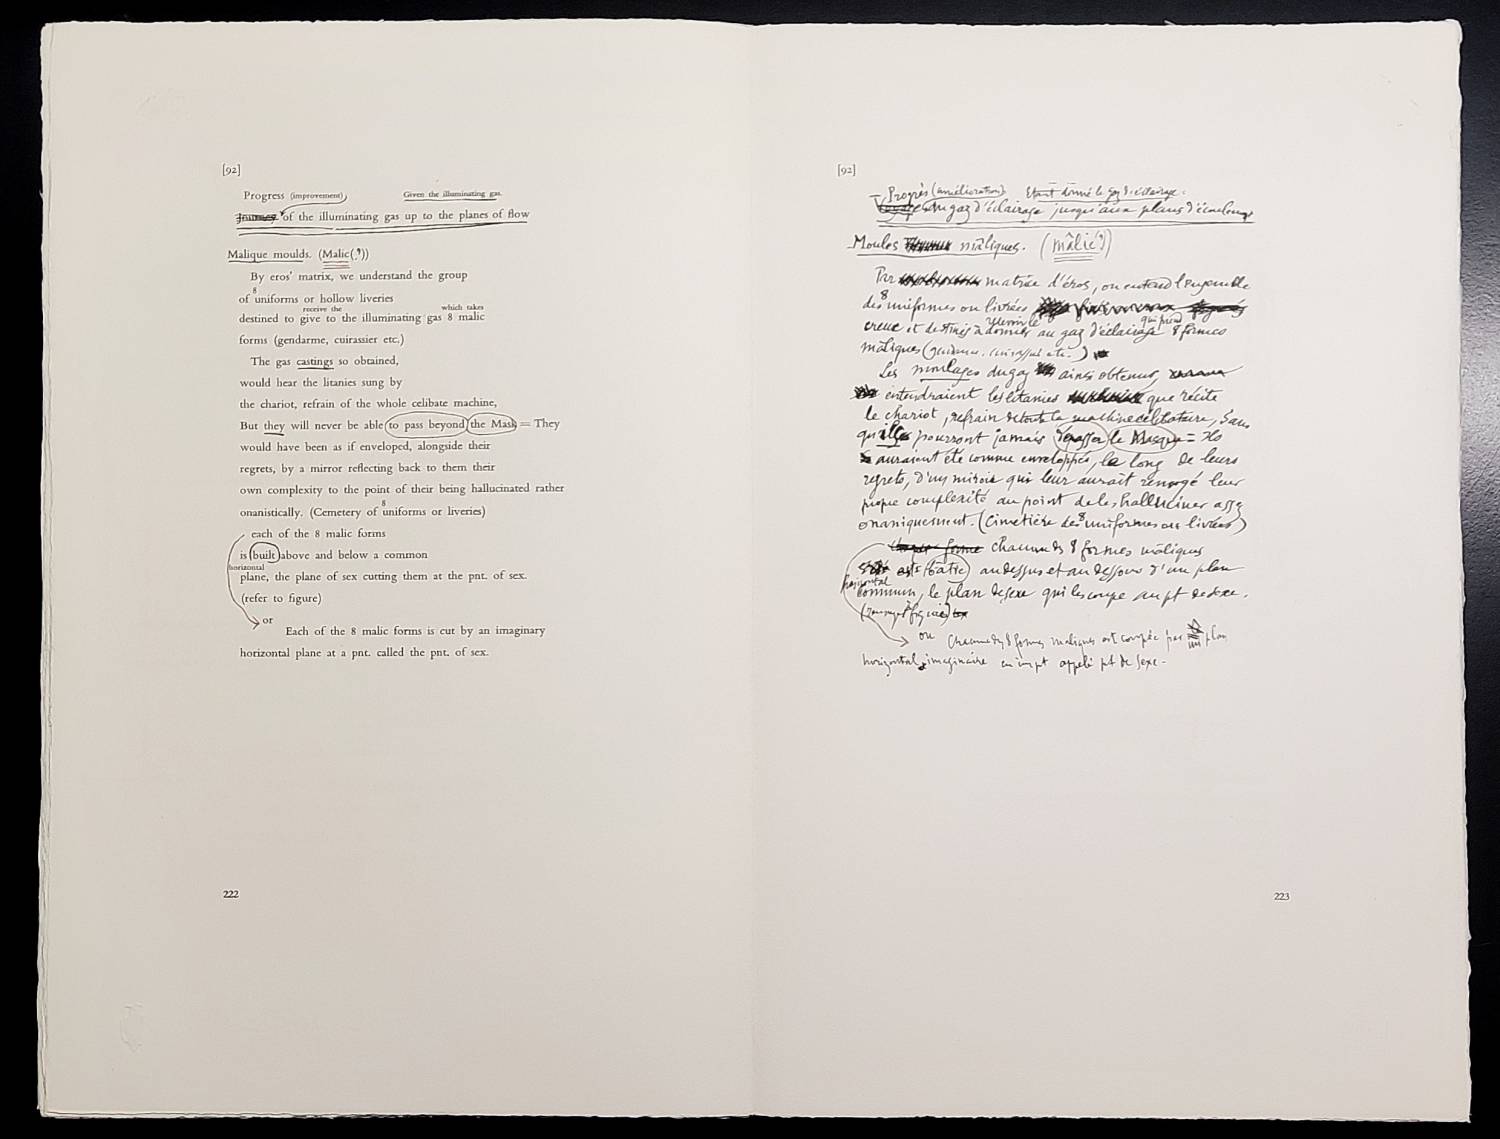 [92]
Progress (improvement) Given the illuminating gas.
Journey of the illuminating gas up to the planes of flow
Malique moulds. (Malic(,))
By eros' matrix, we understand the group
8
of uniforms or hollow liveries
receive the which takes
destined to give to the illuminating gas 8 malic
forms (gendarme, cuirassier etc.)
The gas castings so obtained,
would hear the litanies sung by
the chariot, refrain of the whole celibate machine,
But they will never be able (to pass beyond) (the Mask) = They
would have been as if enveloped, alongside their
regrets, by a mirror reflecting back to them their
own complexity to the point of their being hallucinated rather
8
onanistically. (Cemetery of uniforms or liveries)
each of the 8 malic forms
is (built) above and below a common
horizontal
plane, the plane of sex cutting them at the pnt. of sex.
(refer to figure)
or
Each of the 8 malic forms is cut by an imaginary
horizontal plane at a pnt. called the pnt. of sex.
222
[92]
Progrès (amélioration) Etant donné le gaz d'éclairage.
du gaz d'éclairage jusqu'aux plans d'écoulement
Moules mâliques. (mâlic(,))
Par matrice d'éros, on entend l'ensemble
8
des uniformes ou livrées
recevoir le qui prend
creux et destinés à donner au gaz d'éclairage 8 formes
mâliques (gendarme, cuirassier etc.)
Les moulages du gaz ainsi obtenus,
entendraient les litanies que récite
le chariot, refrain de toute la machine célibataire, Sans
qu'ils pourront jamais (dépasser) (le Masque) = Ils
auraient été comme enveloppés, le long de leurs
regrets, d'un miroir qui leur aurait renvoyé leur
propre complexité au point de les halluciner assez
onaniquement. (Cimetière des 8 uniformes ou livrées)
forme chacune des 8 formes mâliques
est (bâtie) au dessus et au dessous d'un plan
horizontal
commun, le plan de sexe qui les coupe au pt de sexe.
ou Chacune des 8 formes mâliques est coupée par un plan
horizontal imaginaire en un pt appelé pt de sexe.
223